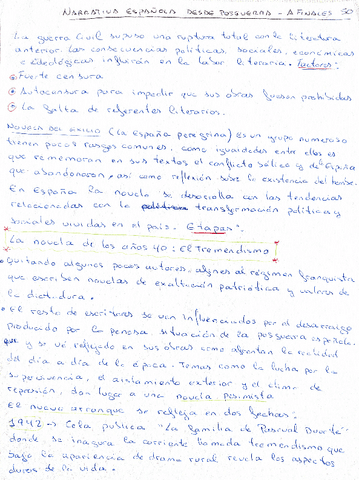 NARRATIVA ESPAÑOLA DESDE POSGUERRA - A FINALES 50
La guerra Civil supuso una ruptura total con la literatura
anterior. Las consecuencias políticas, sociales, económicas
e ideológicas influirán en la labor literaria. Factores:
Fuerte censura
Autocensura para impedir que sus obras fuesen prohibidas
La falta de referentes literarios.
NOVELA DEL EXILIO (La España peregrina) es un grupo numeroso
tienen pocos rasgos comunes, como igualdades entre ellos es
que rememoran en sus textos el conflicto bélico y de España
que abandonaron, así como reflexión sobre la existencia del hombre.
En España la novela se desarrolla con las tendencias
relacionadas con la transformación política y
sociales vividas en el país. Etapas:
La novela de los años 40: El Tremendismo
Quitando algunos pocos autores, afines al régimen franquista
que escriben novelas de exaltación patriótica y valores de
la dictadura.
El resto de escritores se ven influenciados por el desarraigo
producido por la penosa situación de la posguerra española.
que y se ve reflejado en sus obras como afrontan la realidad
del día a día de la época. Temas como la lucha por la
supervivencia, el aislamiento exterior y el clima de
represión, dan lugar a una novela pesimista
El nuevo arranque se refleja en dos fechas:
1942 → Cela publica "La familia de Pascual Duarte"
donde, se inagura la corriente llamada tremendismo que
bajo la apariencia de drama rural revela los aspectos
duros de la vida.